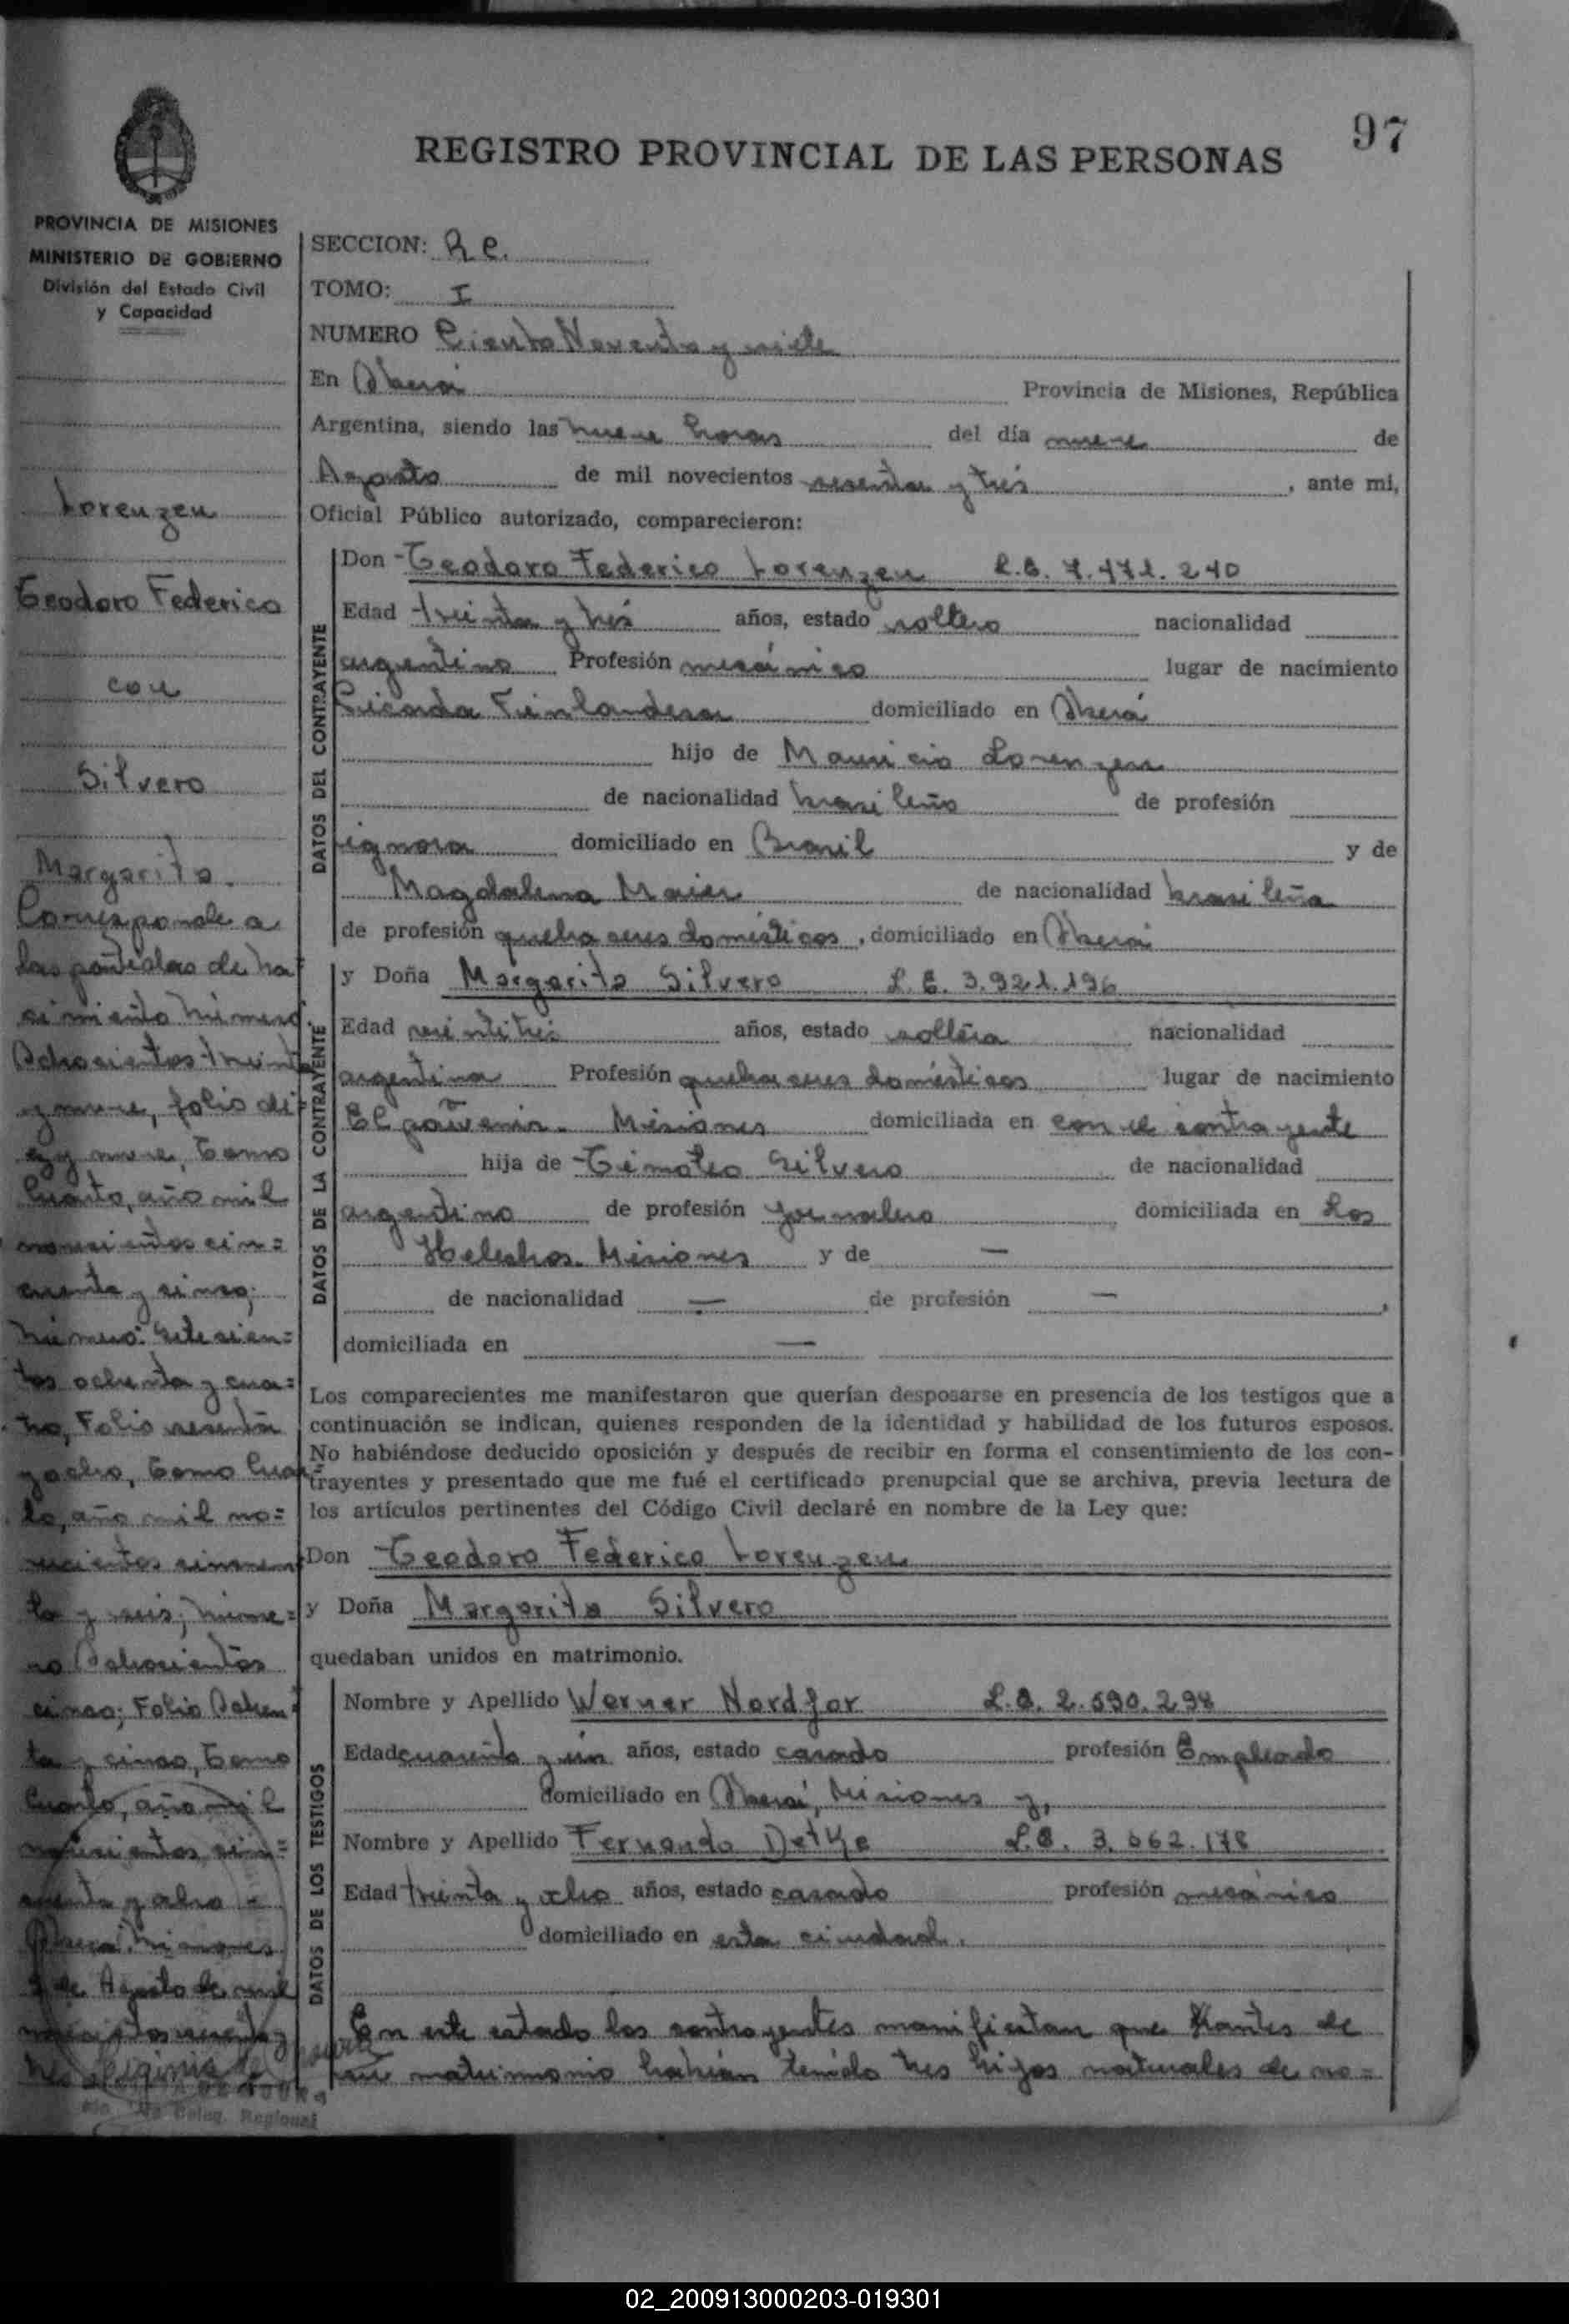 97
REGISTRO PROVINCIAL DE LAS PERSONAS
PROVINCIA DE MISIONES
MINISTERIO DE GOBIERNO
División del Estado Civil
y Capacidad
Lorenzen
Teodoro Federico
con
Silvero
Margarita.
Corresponde a
las partidas de na
cimiento número
Ochocientos treinta
y nueve, folio di
ez y nueve, Tomo
Cuarto, año mil
novecientos cin=
cuenta y cinco;
número: Setecien=
tos ochenta y cua=
tro, Folio sesenta
y ocho, Tomo Cuar=
to, año mil no=
vecientos cincuen
ta y seis; núme=
ro Ochocientos
cinco; Folio Ochen
ta y cinco, Tomo
Cuarto, año mil
novecientos cin=
cuenta y ocho =
Oberá, Misiones
9 de Agosto de mil
novecientos sesenta y
tres
Deleg. Regional
SECCION: R e.
TOMO: I
NUMERO Ciento Noventa y siete
En Oberá Provincia de Misiones, República
Argentina, siendo las nueve horas del día nueve de
Agosto de mil novecientos sesenta y tres, ante mi,
Oficial Público autorizado, comparecieron:
DATOS DEL CONTRAYENTE
Don Teodoro Federico Lorenzen L.E. 7.471.240
Edad treinta y tres años, estado soltero nacionalidad
argentino Profesión mecánico lugar de nacimiento
Picada Finlandesa domiciliado en Oberá
hijo de Mauricio Lorenzen
de nacionalidad brasileño de profesión
ignora domiciliado en Brasil y de
Magdalena Maier de nacionalidad brasileña
de profesión quehaceres domésticos, domiciliado en Oberá
DATOS DE LA CONTRAYENTE
y Doña Margarita Silvero L.E. 3.921.196
Edad veintitres años, estado soltera nacionalidad
argentina Profesión quehaceres domésticos lugar de nacimiento
El porvenir. Misiones domiciliada en con el contrayente
hija de Timoteo Silvero de nacionalidad
argentino de profesión jornalero domiciliada en Los
Helechos. Misiones y de —
de nacionalidad — de profesión — ,
domiciliada en —
Los comparecientes me manifestaron que querían desposarse en presencia de los testigos que a
continuación se indican, quienes responden de la identidad y habilidad de los futuros esposos.
No habiéndose deducido oposición y después de recibir en forma el consentimiento de los con-
trayentes y presentado que me fué el certificado prenupcial que se archiva, previa lectura de
los artículos pertinentes del Código Civil declaré en nombre de la Ley que:
Don Teodoro Federico Lorenzen
y Doña Margarita Silvero
quedaban unidos en matrimonio.
DATOS DE LOS TESTIGOS
Nombre y Apellido Werner Nordfor L.E. 2.590.298
Edad cuarenta y un años, estado casado profesión Empleado
domiciliado en Oberá, Misiones y,
Nombre y Apellido Fernando Detke L.E. 3.662.178
Edad treinta y ocho años, estado casado profesión mecánico
domiciliado en esta ciudad.
En este estado los contrayentes manifiestan que antes de
su matrimonio habían tenido tres hijos naturales de no=
02_200913000203-019301